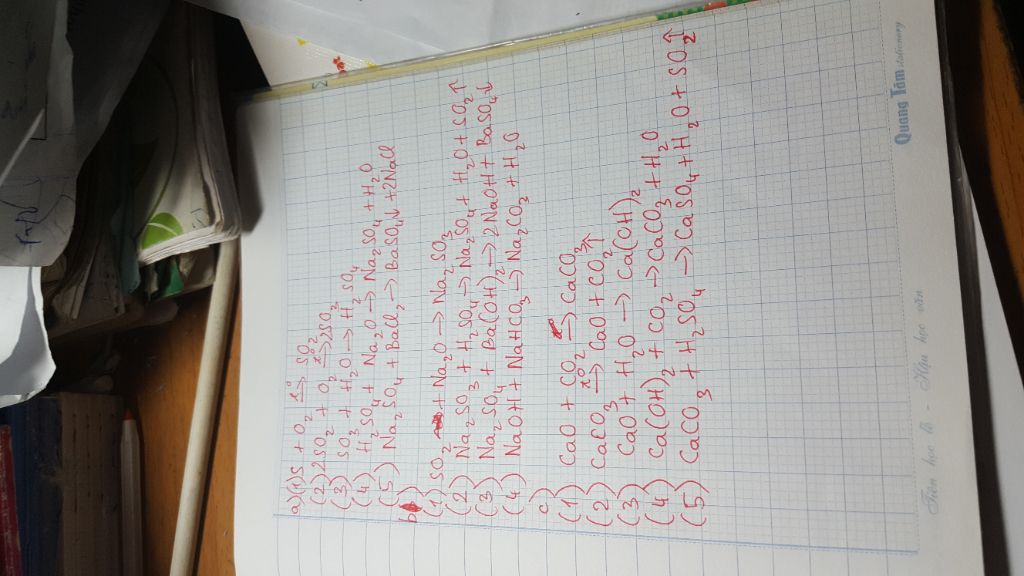 a) (1) S + O2 t°→ SO2
(2) 2SO2 + O2 t°→ 2SO2
(3) SO3 + H2O → H2SO4
(4) H2SO4 + Na2O → Na2SO4 + H2O
(5) Na2SO4 + BaCl2 → BaSO4↓ + 2NaCl
b)
(1) SO2 + Na2O → Na2SO3
(2) Na2SO3 + H2SO4 → Na2SO4 + H2O + SO2↑
(3) Na2SO4 + Ba(OH)2 → 2NaOH + BaSO4↓
(4) NaOH + NaHCO3 → Na2CO3 + H2O
c)
(1) CaO + CO2 → CaCO3
(2) CaCO3 t°→ CaO + CO2↑
(3) CaO + H2O → Ca(OH)2
(4) Ca(OH)2 + CO2 → CaCO3 + H2O
(5) CaCO3 + H2SO4 → CaSO4 + H2O + SO2↑
Tiên học lễ - Hậu học văn
Quang Tâm stationery